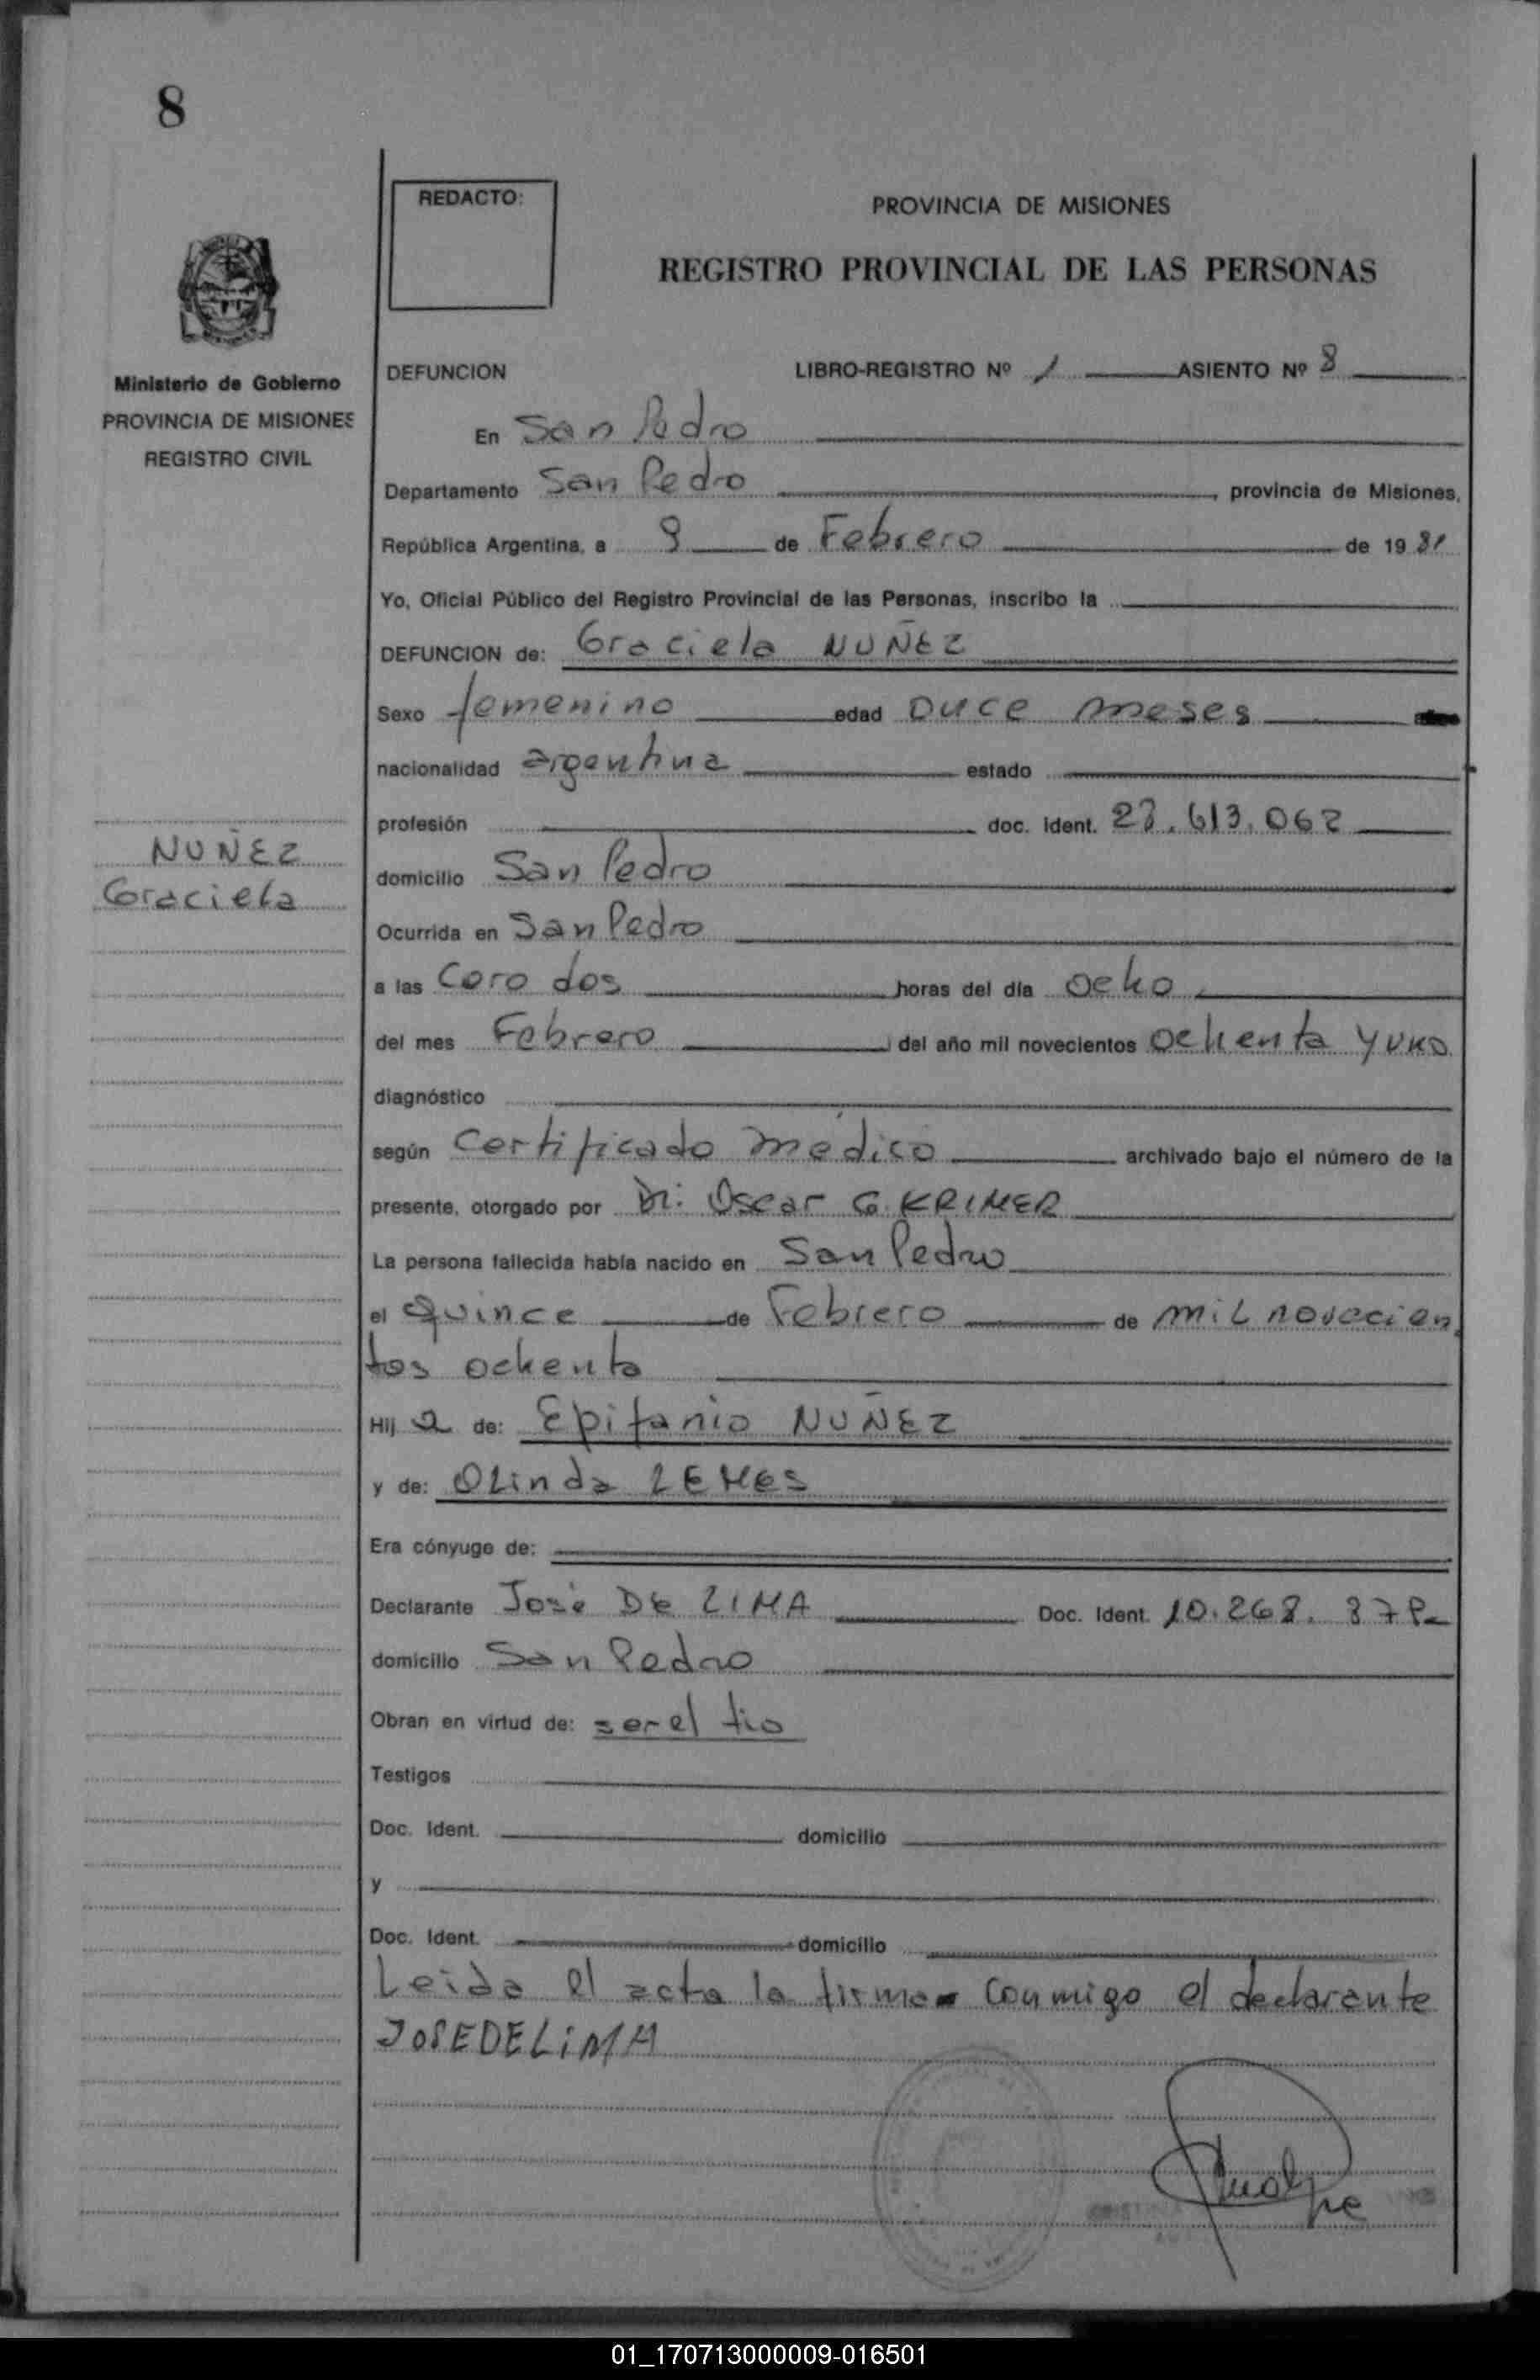 8
REDACTO:
PROVINCIA DE MISIONES
REGISTRO PROVINCIAL DE LAS PERSONAS
Ministerio de Gobierno
PROVINCIA DE MISIONES
REGISTRO CIVIL
DEFUNCION LIBRO-REGISTRO Nº 1 ASIENTO Nº 8
En San Pedro
Departamento San Pedro, provincia de Misiones,
República Argentina, a 9 de Febrero de 1981
Yo, Oficial Público del Registro Provincial de las Personas, inscribo la
DEFUNCION de: Graciela NUÑEZ
Sexo femenino edad Once meses
nacionalidad argentina estado
profesión doc. ident. 28.613.062
NUÑEZ
Graciela
domicilio San Pedro
Ocurrida en San Pedro
a las Cero dos horas del día ocho
del mes Febrero del año mil novecientos Ochenta y uno
diagnóstico
según Certificado médico archivado bajo el número de la
presente, otorgado por Dr. Oscar G. KRIMER
La persona fallecida había nacido en San Pedro
el quince de Febrero de mil novecien
tos ochenta
Hija de: Epifanio NUÑEZ
y de: Olinda LEMES
Era cónyuge de:
Declarante José DE LIMA Doc. Ident. 10.268.
domicilio San Pedro
Obran en virtud de: ser el tio
Testigos
Doc. Ident. domicilio
y
Doc. Ident. domicilio
Leida el acta la firma conmigo el declarante
JOSEDELIMA
01_170713000009-016501